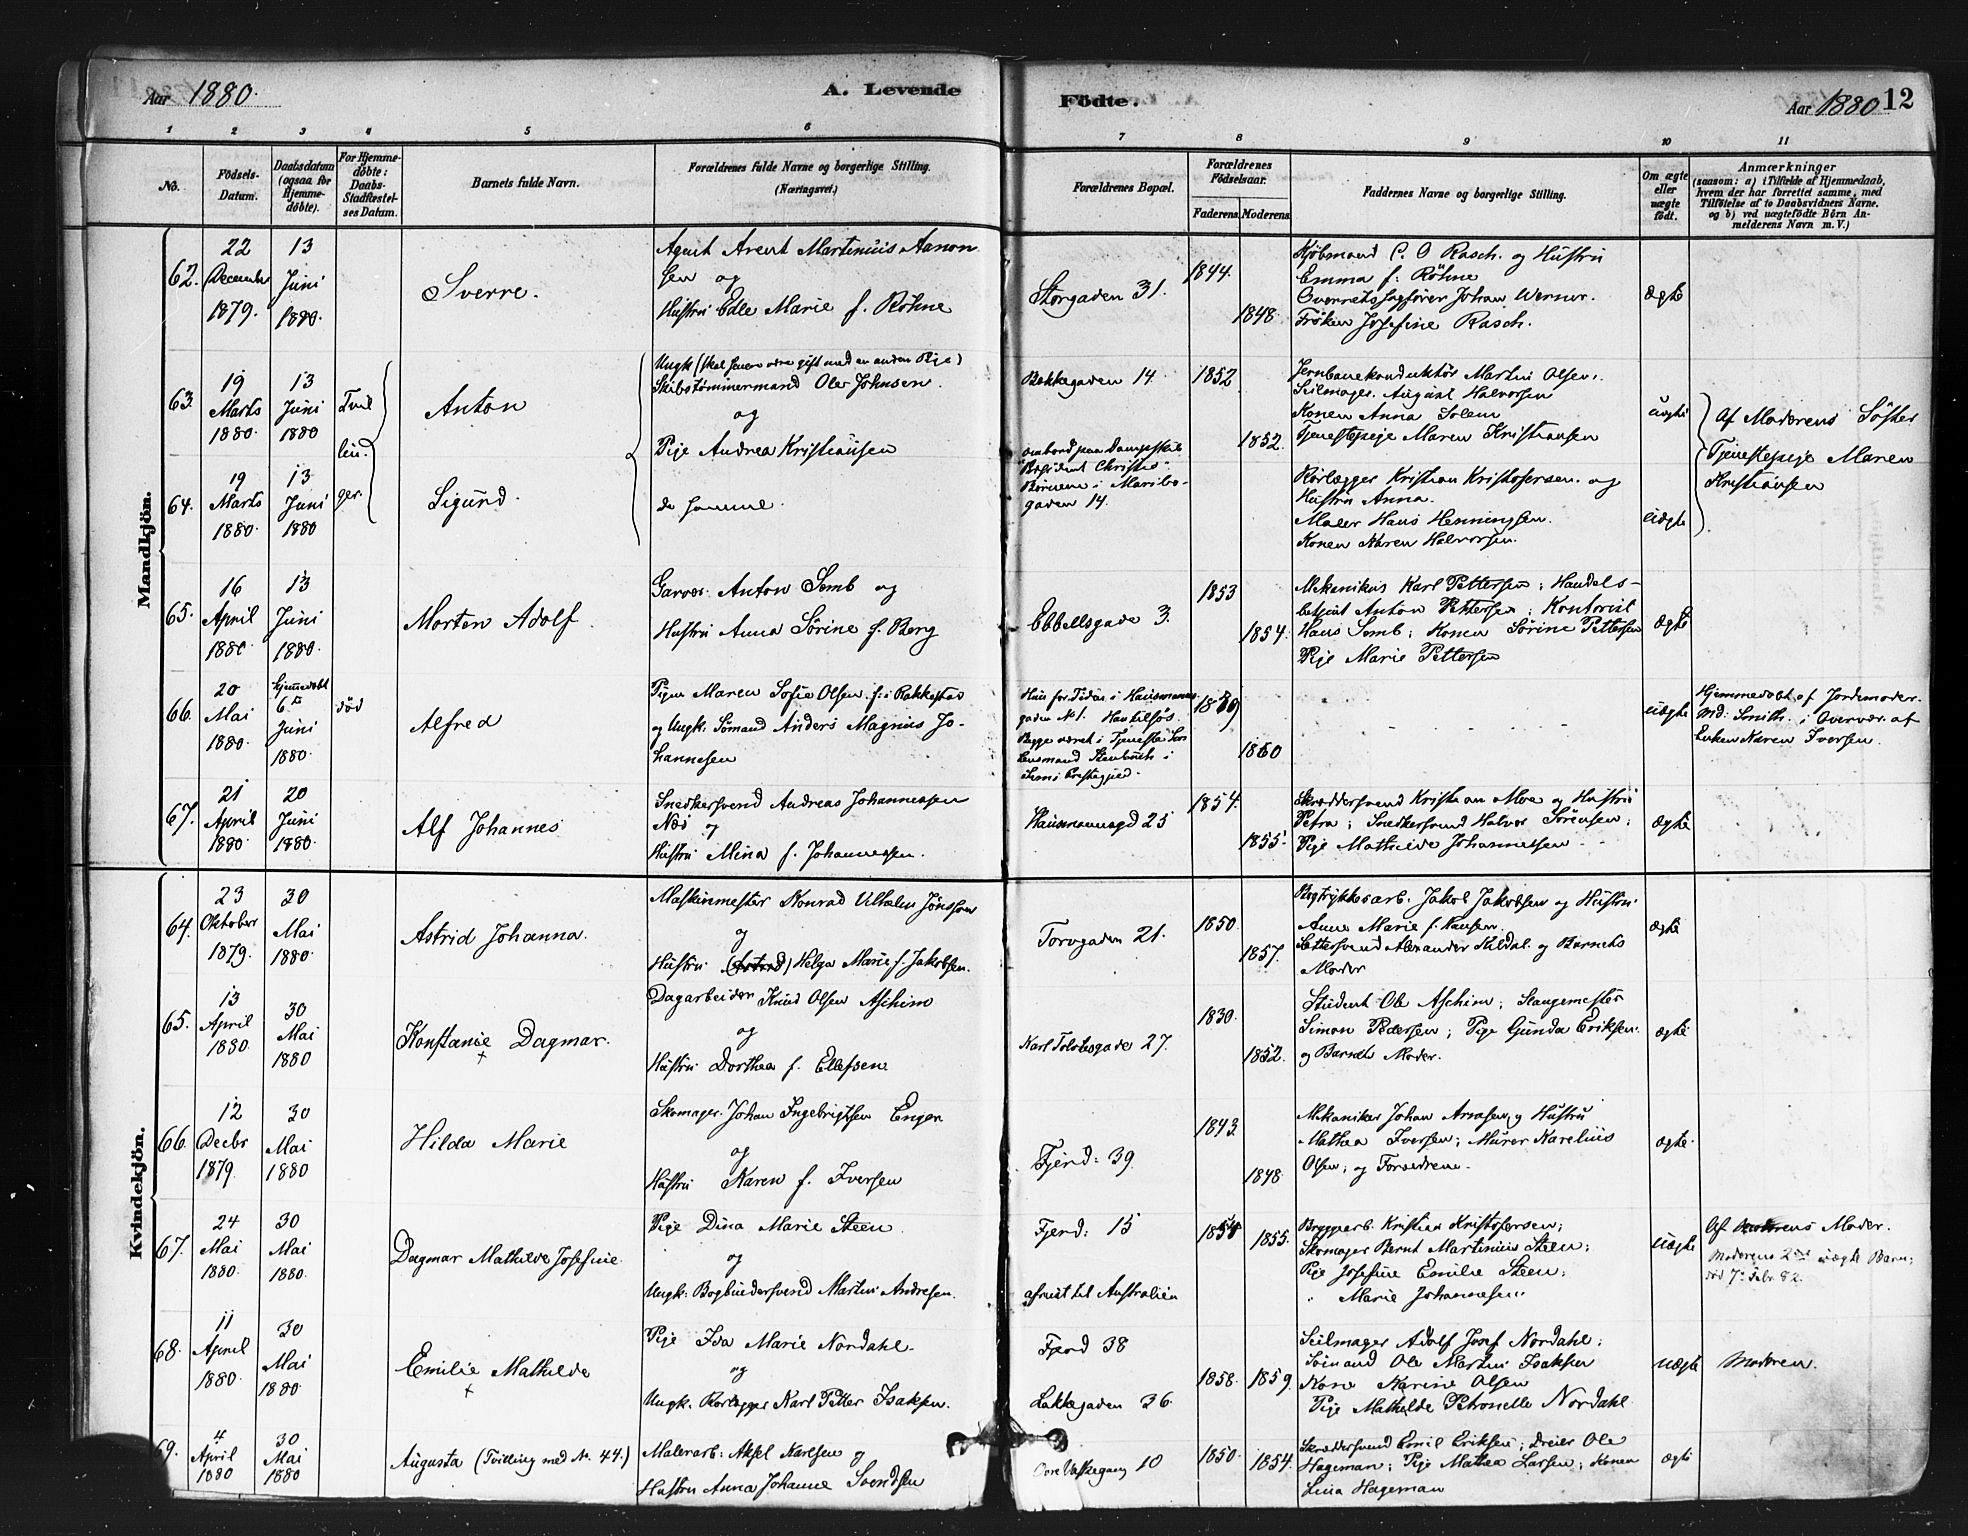 Aar 1880.
A. Levende
Födte.
Aar 1880 12
1 2 3 4 5 6 7 8 9 10 11
No.
Födsels-
Datum.
Daabsdatum
(ogsaa for
Hjemme-
döbte).
For Hjemme-
döbte:
Daabs-
Stadfæstel-
ses Datum.
Barnets fulde Navn.
Forældrenes fulde Navne og borgerlige Stilling.
(Næringsvei.)
Forældrenes Bopæl.
Forældrenes
Födselsaar.
Faderens. Moderens.
Faddernes Navne og borgerlige Stilling.
Om ægte
eller
uægte
födt.
Anmærkninger
(saasom: a) i Tilfælde af Hjemmedaab,
hvem der har forrettet samme, med
Tilföielse af to Daabsvidners Navne.
og b) ved uægtefödte Börn An-
melderens Navn m. V.)
Mandkjön.
62.
22
December
1879.
13
Juni
1880.
Sverre.
Agent Arent Martinius Aanon
sen og
Hustru Edle Marie f. Röhne
Storgaden 31.
1844.
1848
Kjöbmand C. O Rasch. og Hustru
Emma f. Röhne
Overretssagförer Johan Werner.
Fröken Josefine Rasch.
ægte
63.
19
Marts
1880
13
Juni
1880
Tvil
lin
ger.
Anton
Ungk (skal senere være gift med en anden Pige)
Skibstömmermand Ole Johnsen.
og
Pige Andrea Kristiansen
Bakkegaden 14.
ombord paa Dampskib
"Præsident Christie"
Börnene i Maribo-
gaden 14.
1852
1852.
Jernbanekonduktör Martin Olsen.
Seilmager. August Halvorsen
Konen Anna Solem
Tjenestepige Maren Kristiansen
uægte
Af Moderens Söster
Tjenestepige Maren
Kristiansen
64.
19
Marts
1880.
13
Juni
1880
Sigurd.
de samme.
Rörlægger Kristian Kristofersen. og
Hustru Anna.
Maler Hans Henningsen.
Konen Maren Halvorsen.
uægte
65.
16
April
1880
13
Juni
1880.
Morten Adolf.
Garver. Anton Semb og
Hustru Anna Sörine f. Berg
Ebbellsgade 3.
1853
1854.
Mekanikus Karl Pettersen; Handels-
betjent Anton Pettersen; Kontorist
Hans Semb; Konen Sörine Pettersen
Pige Marie Pettersen
ægte
66.
20
Mai
1880.
Hjemmedöbt
6te
Juni
1880.
död
Alfred
Pigen Maren Sofie Olsen f. i Rakkestad
og Ungk. Sömand Anders Magnus Jo-
hannesen
Hun for Tiden i Hausmanns
gaden No 1. Han tilsjös.
Begge været i Tjeneste hos
Lensmand Stenbuch i
Sems Præstegjed.
1860
Hjemmedöbt af Jordemoder.
Md: Smith. i Overvær af
Enken Maren Iversen.
uægte
67.
21
April
1880
20
Juni
1880.
Alf Johannes
Snedkersvend Andreas Johannessen
Næs og
Hustru Mina f. Johannessen.
Hausmannsgd 25
1854.
1855.
Skræddersvend Kristian Moe og Hustru
Petra; Snedkersvend Halvor Sörensen;
Pige Mathilde Johannessen
ægte
Kvindekjön.
64.
23
Oktober
1879.
30
Mai
1880.
Astrid Johanna.
Maskinmester Konrad Vilhelm Jönsson
og
Hustru (Astrid) Helga Marie f. Jakobsen.
Torvgaden 21.
1850.
1857.
Bogtrykkerarb. Jakob Jakobsen og Hustru
Anne Marie f. Hansen.
Sættersvend Alexander Hildal. og Barnets
Moder
ægte
65.
13
April
1880
30
Mai
1880
Konstanse Dagmar.
+
Dagarbeider Knud Olsen Aschim
og
Hustru Dorthea f. Ellefsen
Karl Tolvtesgade 27.
1830.
1852.
Student Ole Aschim; Stangemester
Simon Pedersen; Pige Gunda Eriksen.
og Barnets Moder.
ægte
66.
12
Decbr
1879.
30
Mai
1880
Hilda Marie
Skomager. Johan Ingebrigtsen Enger
og
Hustru Karen f. Iversen
Fjerd: 39.
1843.
1848.
Mekaniker Johan Arnesen og Hustru
Mathea Iversen; Murer Karelius
Olsen; og Forældrene.
ægte.
67.
24
Mai
1880.
30
Mai
1880.
Dagmar Mathilde Josefine.
Pige Dina Marie Steen.
og
Ungk: Bogbindersvend Martin Andresen.
Fjerd: 15
afreist til Australien
1855.
Bryggearb. Kristian Kristofersen;
Skomager Bernt Martinius Steen;
Pige Josefine Emilie Steen;
" Marie Johannesen.
uægte
Af Moderens Moder.
Moderens 2det uægte Barn;
död 7de Febr. 82.
68.
11
April
1880.
30
Mai
1880.
Emilie Mathilde
+
Pige Ida Marie Nordahl.
og
Ungk. Rörlægger Karl Petter Isaksen.
Fjerd 38
Lakkegaden 36.
1858.
1859.
Seilmager Adolf Josef Nordahl;
Sömand Ole Martin Isaksen
Kone Karine Olsen
Pige Mathilde Petronelle Nordahl
uægte
Moderen.
69.
4
April
1880
30
Mai
1880
Augusta (Tvilling med No. 44.)
Malerarb: Aksel Karlsen og
Hustru Anna Johanne Svendsen
Övre Vaskegang 10
1850.
1854.
Skræddersvend Emil Eriksen; Dreier Ole
Hageman; Pige Mathea Larsen; Konen
Lina Hageman
ægte